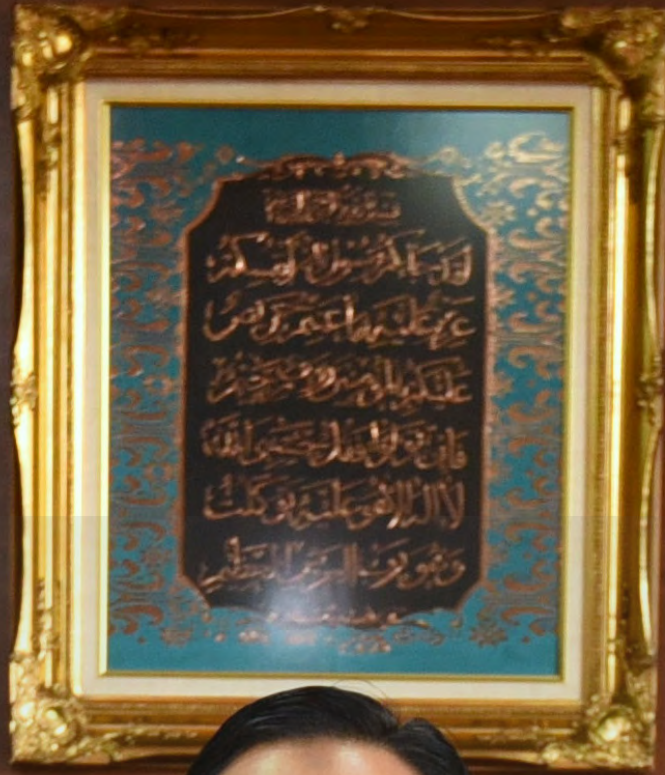 لقد جاءكم رسول من أنفسكم
عزيز عليه ما عنتم حريص
عليكم بالمؤمنين رءوف رحيم
فإن تولوا فقل حسبي الله
لا إله إلا هو عليه توكلت
وهو رب العرش العظيم